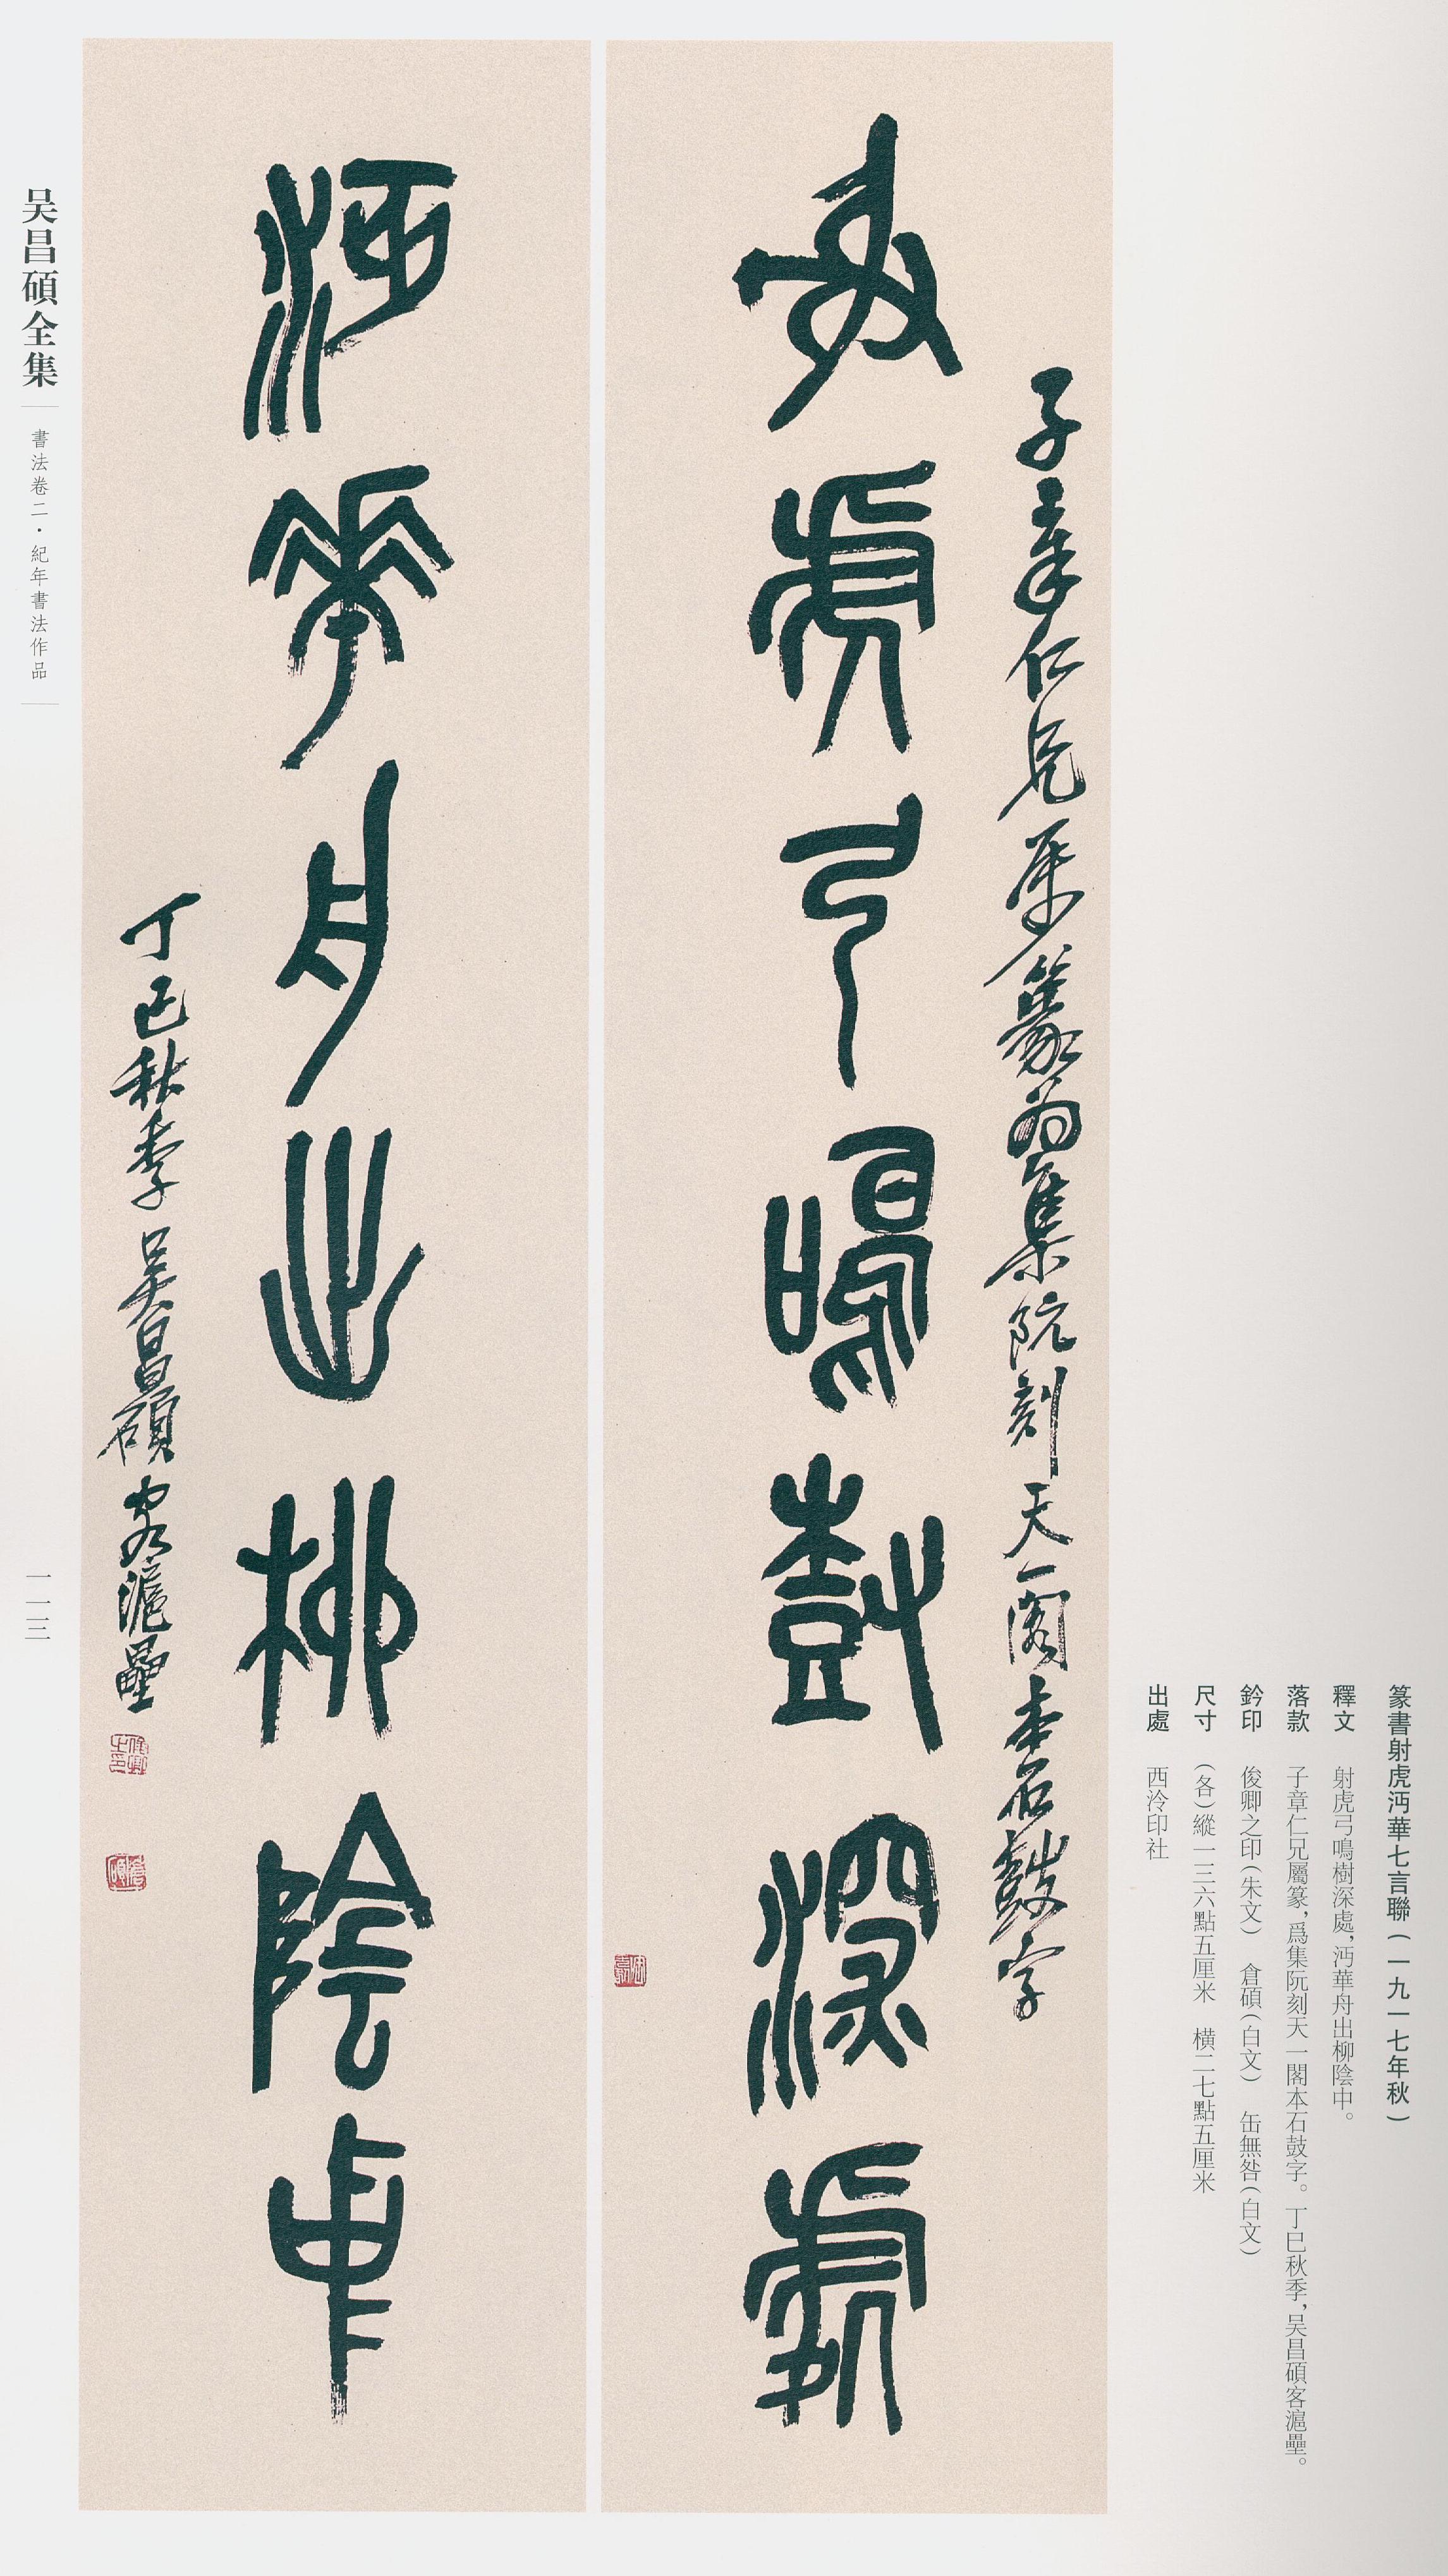 篆書射虎沔華七言聯(一九一七年秋)
釋文 射虎弓鳴樹深處,沔華舟出柳陰中。
落款 子章仁兄屬篆,爲集阮刻天一閣本石鼓字。丁巳秋季,吴昌碩客滬壘。
鈐印 俊卿之印(朱文) 倉碩(白文) 缶無咎(白文)
尺寸 (各)縱一三六點五厘米 橫二七點五厘米
出處 西泠印社
子章仁兄屬篆爲集阮刻天一閣本石鼓字
射虎弓鳴樹深處
沔華舟出柳陰中
丁巳秋季吴昌碩客滬壘
俊卿之印
倉碩
吴昌碩全集
書法卷二·紀年書法作品
一一三